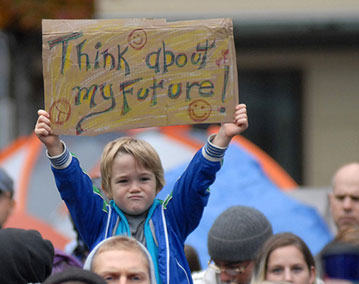 Think about
my Future!